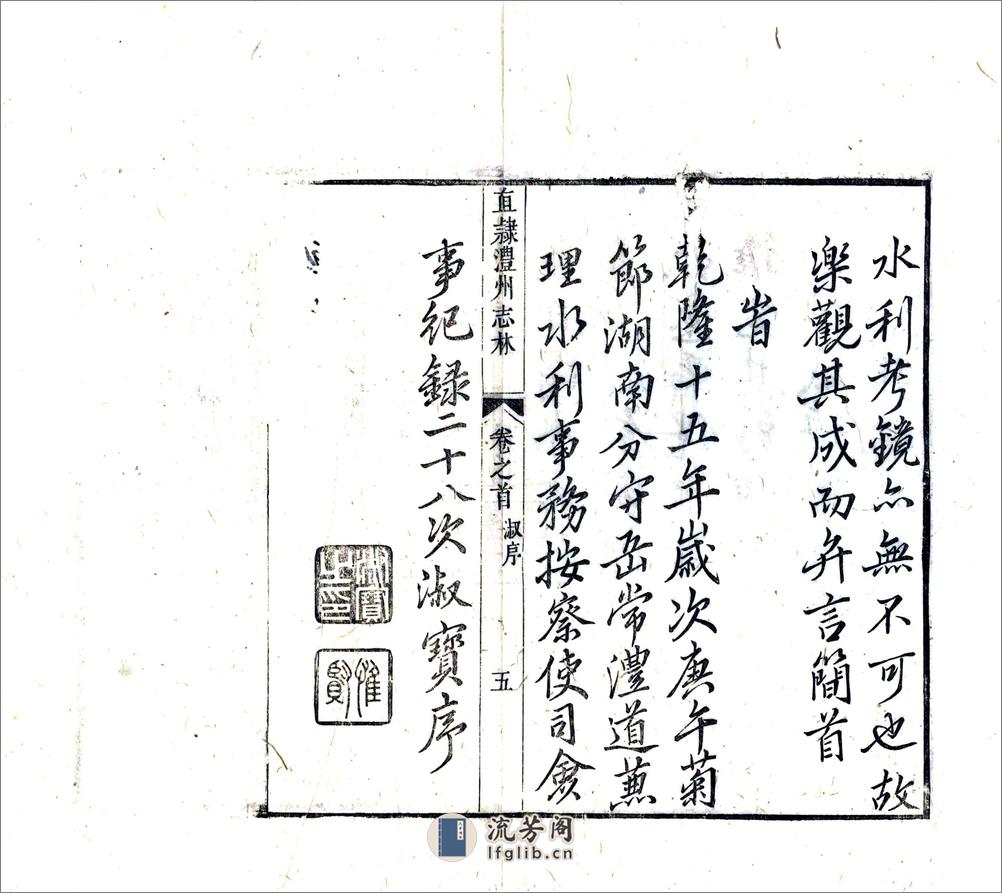 水利考鏡亦無不可也故
樂觀其成而弁言簡首
旹
乾隆十五年歲次庚午菊
節湖南分守岳常澧道兼
理水利事務按察使司僉
直隸澧州志林
卷之首
淑序
五
事紀錄二十八次淑寶序
淑寶之印
惟賢
流芳阁
lfglib.cn